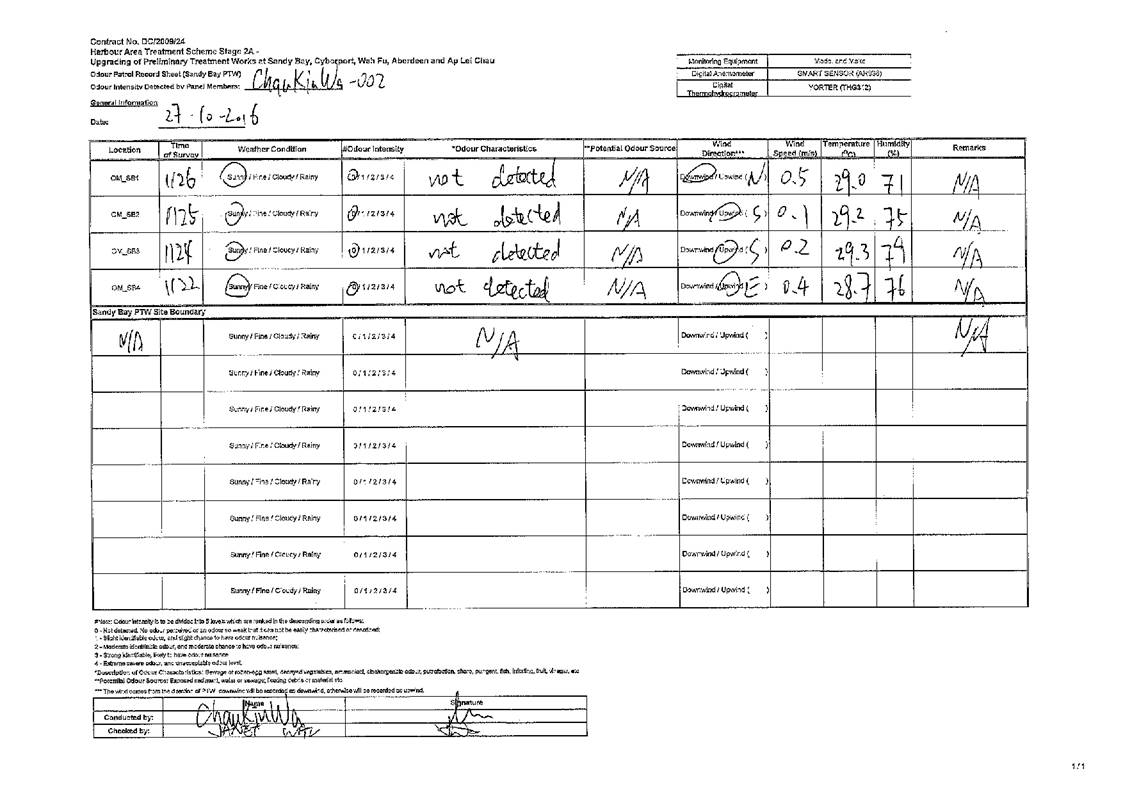 Contract No. DC/2009/24
Harbour Area Treatment Scheme Stage 2A -
Upgrading of Preliminary Treatment Works at Sandy Bay, Cyberport, Wah Fu, Aberdeen and Ap Lei Chau
Odour Patrol Record Sheet (Sandy Bay PTW)
Odour Intensity Detected by Panel Members: Chan Kin Wa -002
General Information
Date: 27-10-2016
Monitoring Equipment Model and Make
Digital Anemometer SMART SENSOR (AR836)
Digital Thermohydrometer YORTER (THG312)
Location Time of Survey Weather Condition #Odour Intensity *Odour Characteristics **Potential Odour Source Wind Direction*** Wind Speed (m/s) Temperature (°C) Humidity (%) Remarks
OM_SB1 1126 Sunny / Fine / Cloudy / Rainy 0/1/2/3/4 not detected N/A Downwind / Upwind (N) 0.5 29.0 71 N/A
OM_SB2 1125 Sunny / Fine / Cloudy / Rainy 0/1/2/3/4 not detected N/A Downwind / Upwind (S) 0.1 29.2 75 N/A
OM_SB3 1124 Sunny / Fine / Cloudy / Rainy 0/1/2/3/4 not detected N/A Downwind / Upwind (S) 0.2 29.3 79 N/A
OM_SB4 1122 Sunny / Fine / Cloudy / Rainy 0/1/2/3/4 not detected N/A Downwind / Upwind (E) 0.4 28.7 76 N/A
Sandy Bay PTW Site Boundary
N/A Sunny / Fine / Cloudy / Rainy 0/1/2/3/4 N/A Downwind / Upwind ( ) N/A
Sunny / Fine / Cloudy / Rainy 0/1/2/3/4 Downwind / Upwind ( )
Sunny / Fine / Cloudy / Rainy 0/1/2/3/4 Downwind / Upwind ( )
Sunny / Fine / Cloudy / Rainy 0/1/2/3/4 Downwind / Upwind ( )
Sunny / Fine / Cloudy / Rainy 0/1/2/3/4 Downwind / Upwind ( )
Sunny / Fine / Cloudy / Rainy 0/1/2/3/4 Downwind / Upwind ( )
Sunny / Fine / Cloudy / Rainy 0/1/2/3/4 Downwind / Upwind ( )
Sunny / Fine / Cloudy / Rainy 0/1/2/3/4 Downwind / Upwind ( )
#Note: Odour intensity is to be divided into 5 levels which are ranked in the descending order as follows:
0 - Not detected. No odour perceived or an odour so weak that it can not be easily characterised or described;
1 - Slight identifiable odour, and slight chance to have odour nuisance;
2 - Moderate identifiable odour, and moderate chance to have odour nuisance;
3 - Strong identifiable, likely to have odour nuisance
4 - Extreme severe odour, and unacceptable odour level.
*Description of Odour Characteristics: Sewage or rotten-egg smell, decayed vegetables, ammoniacal, dischargeable odour, putrefaction, sharp, pungent, fish, irritating, fruit, vinegar, etc
**Potential Odour Source: Exposed sediment, water or sewage, floating debris or material etc
*** The wind comes from the direction of PTW, downwind will be recorded as downwind, otherwise will be recorded as upwind.
Name Signature
Conducted by: Chan Kin Wa
Checked by: JANET
1/1